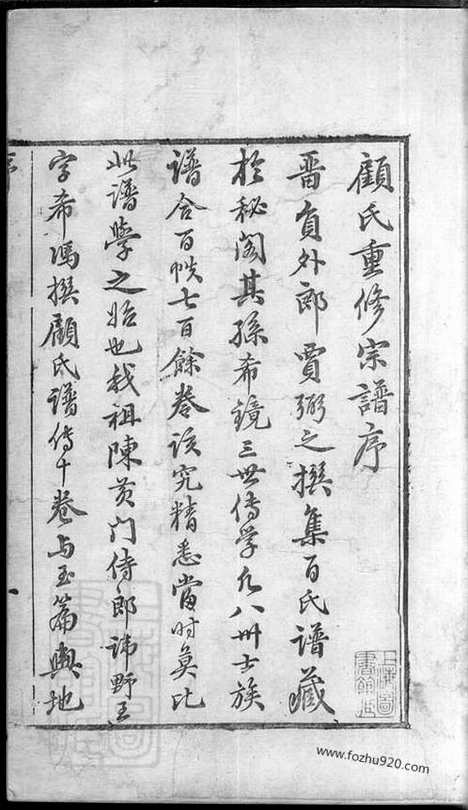 顧氏重修宗譜序
晉員外郎賈弼之撰集百氏譜藏
於秘閣其孫希鏡三世傳學凡八州士族
譜合百帙七百餘卷該究精悉當时莫比
此譜學之始也我祖陳黄门侍郎諱野王
字希馮撰顧氏譜傳十卷与玉篇輿地
上海圖書館藏
www.fozhu920.com